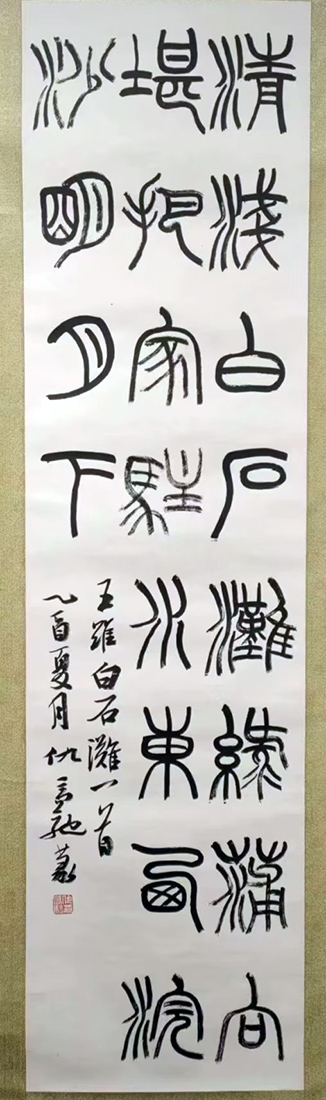 清淺白石灘綠蒲向
堪把家駐水東西浣
沙明月下
王維白石灘一首
乙酉夏月仇高馳篆